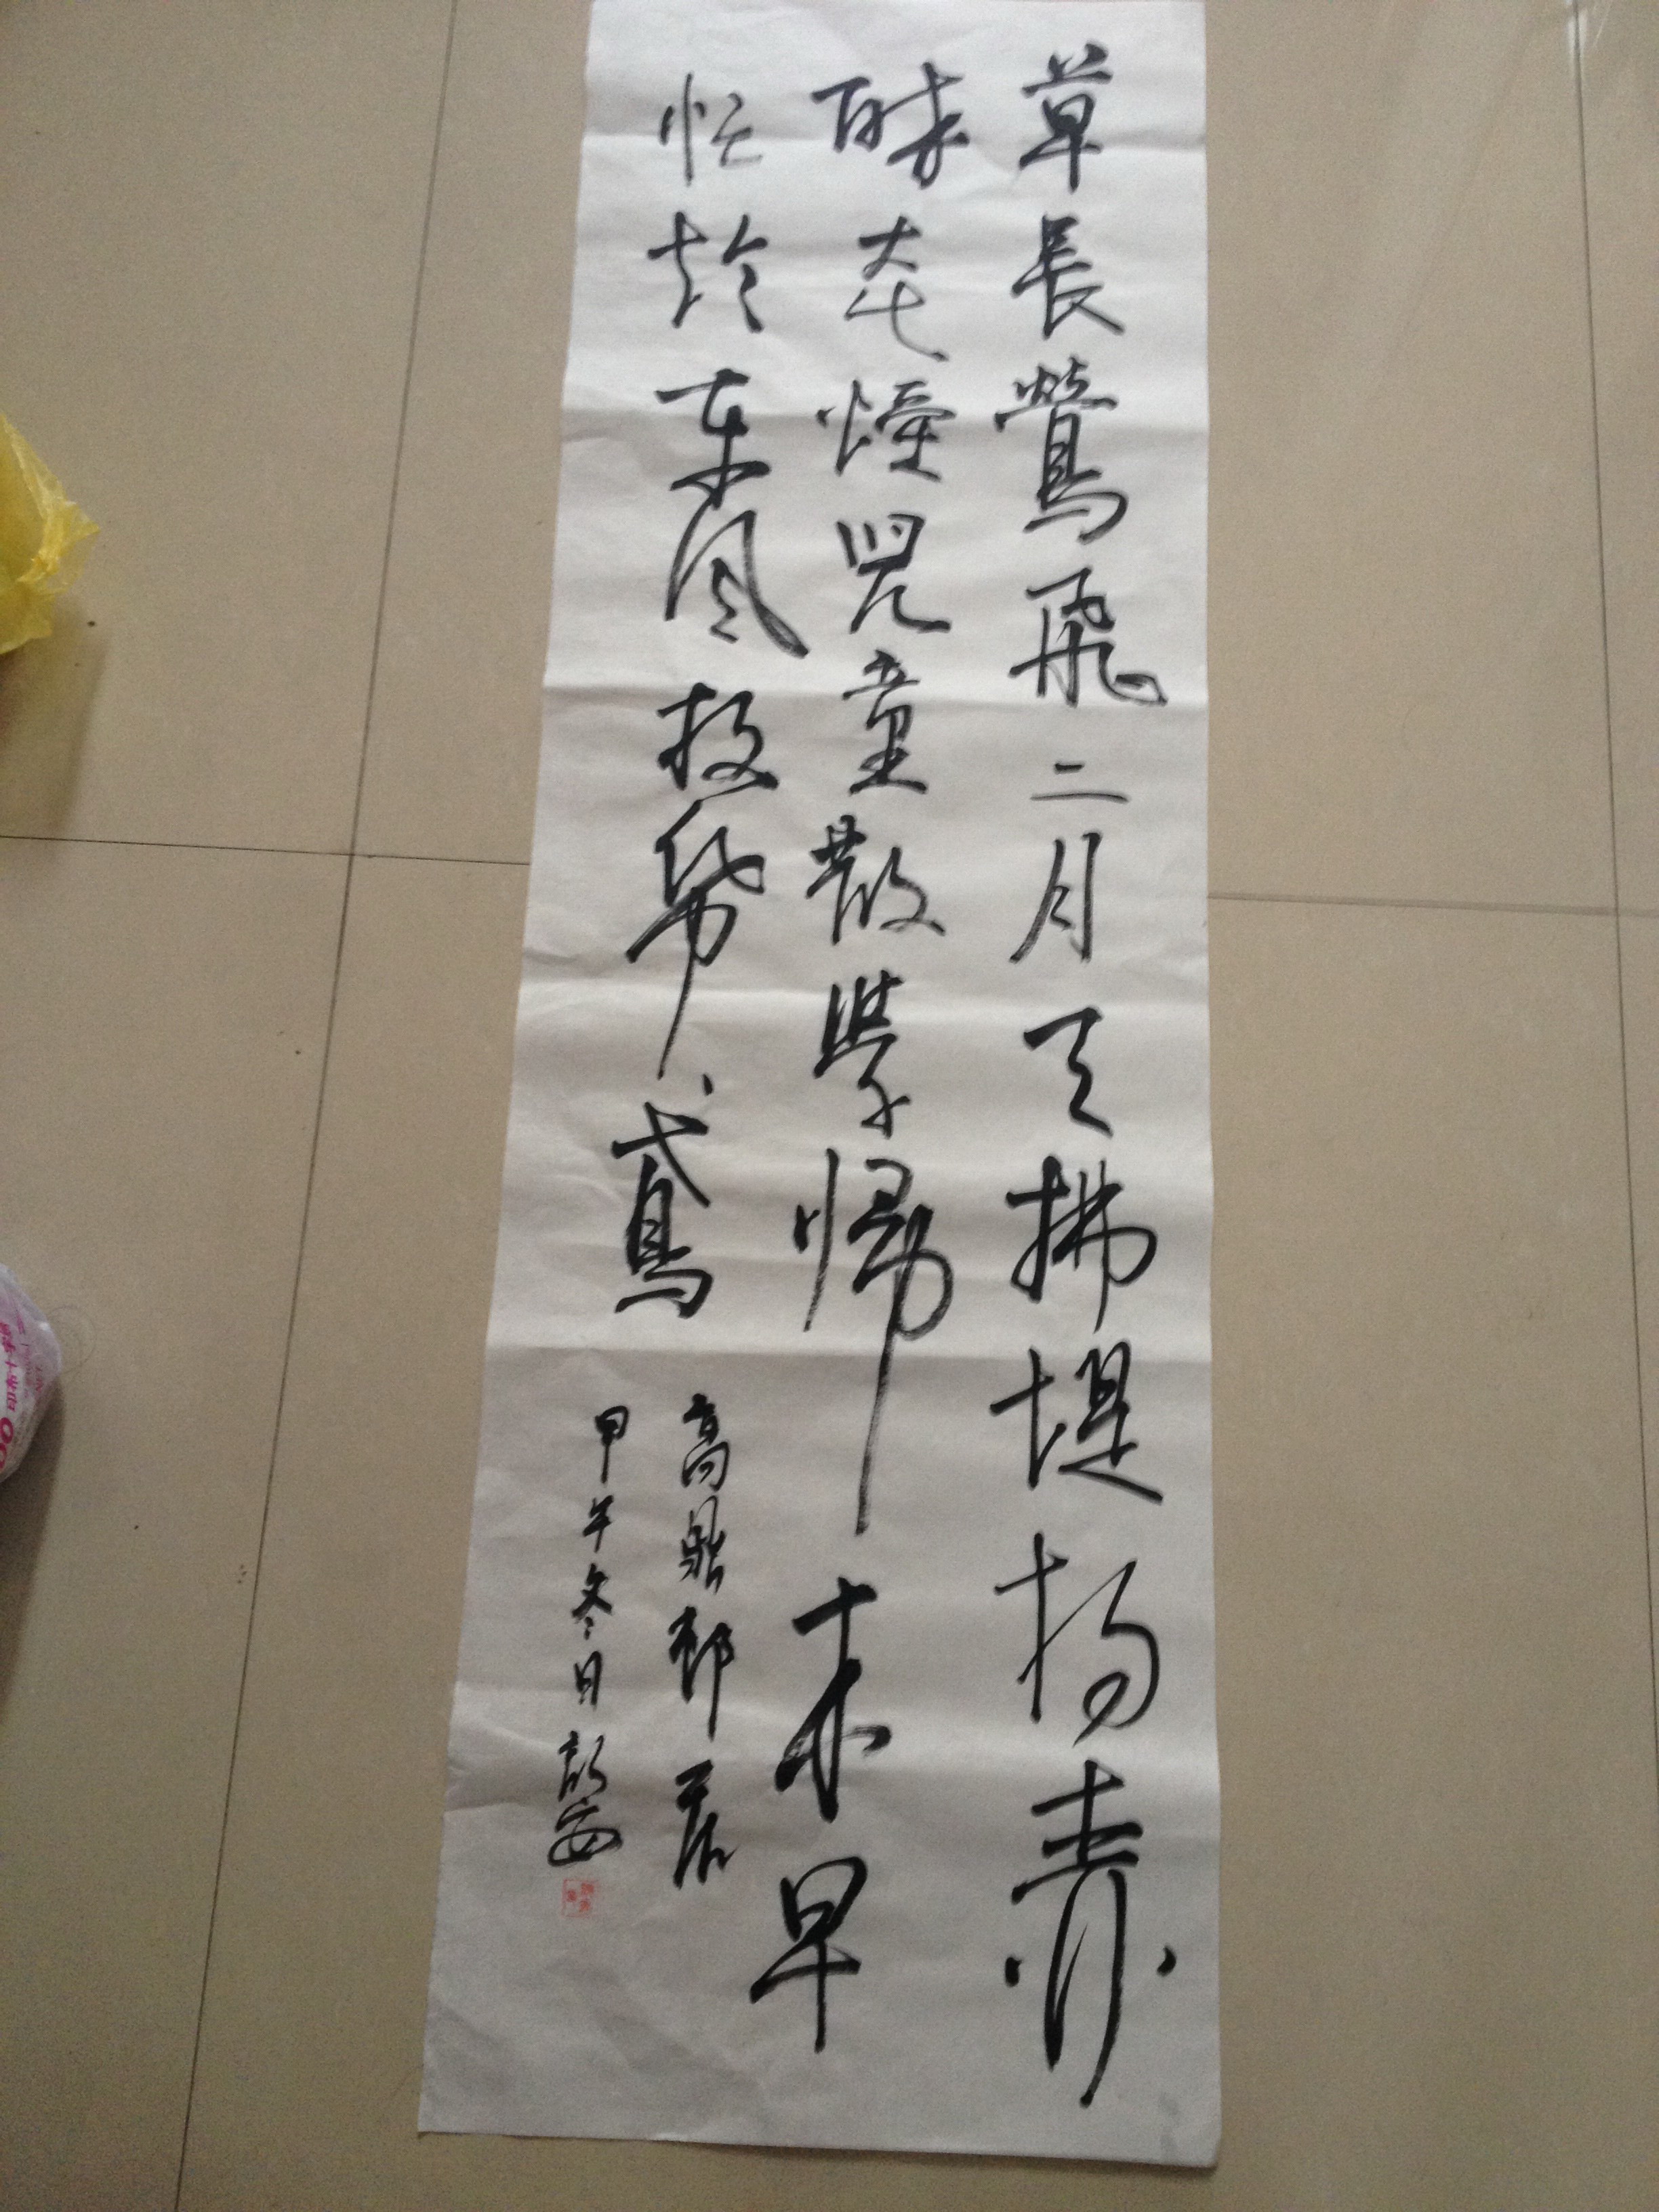 草長鶯飛二月天拂堤楊
醉春煙兒童散學歸来早
忙趁东风放帋鳶
高鼎邨居
甲午冬日